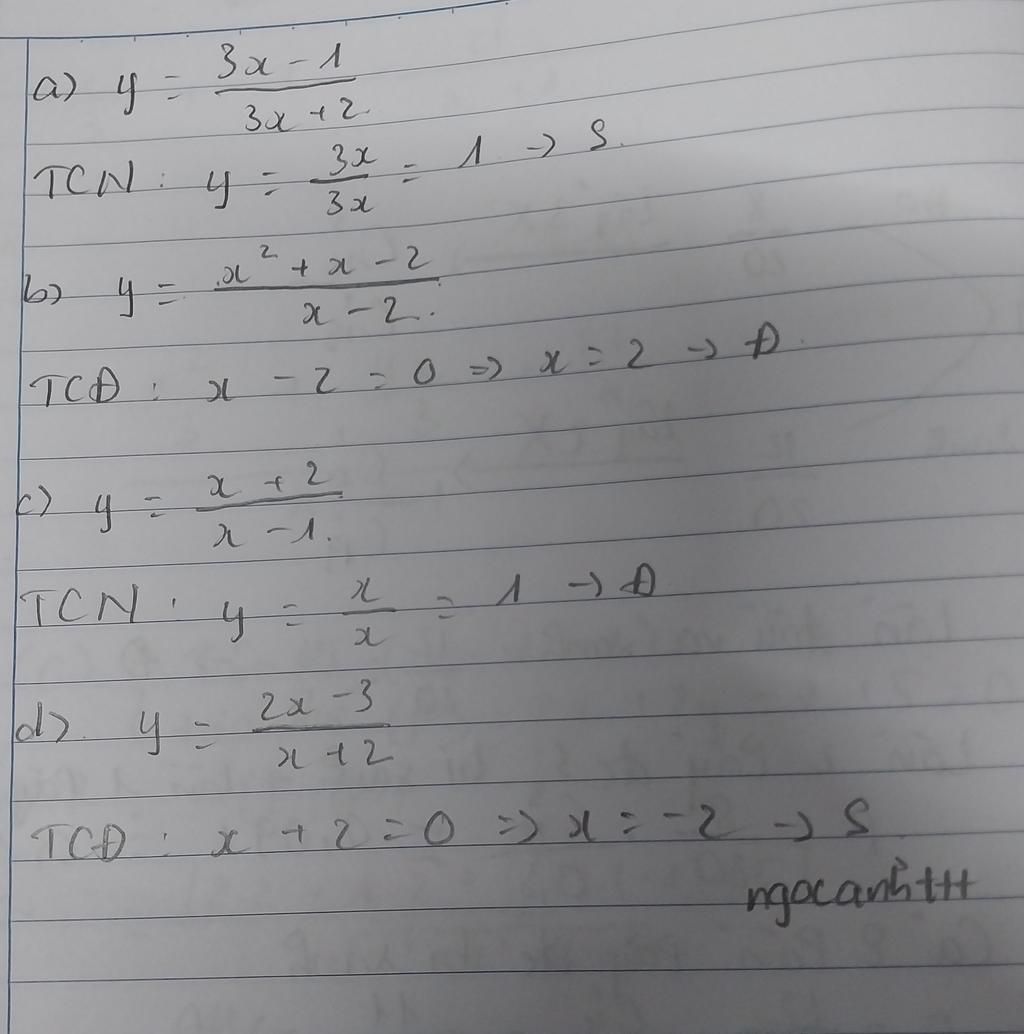 a) y = (3x - 1)/(3x + 2)
TCN : y = 3x/3x = 1 → S.
b) y = (x² + x - 2)/(x - 2)
TCĐ : x - 2 = 0 => x = 2 → Đ
c) y = (x + 2)/(x - 1)
TCN : y = x/x = 1 → Đ
d) y = (2x - 3)/(x + 2)
TCĐ : x + 2 = 0 => x = -2 → S
ngocanhttt